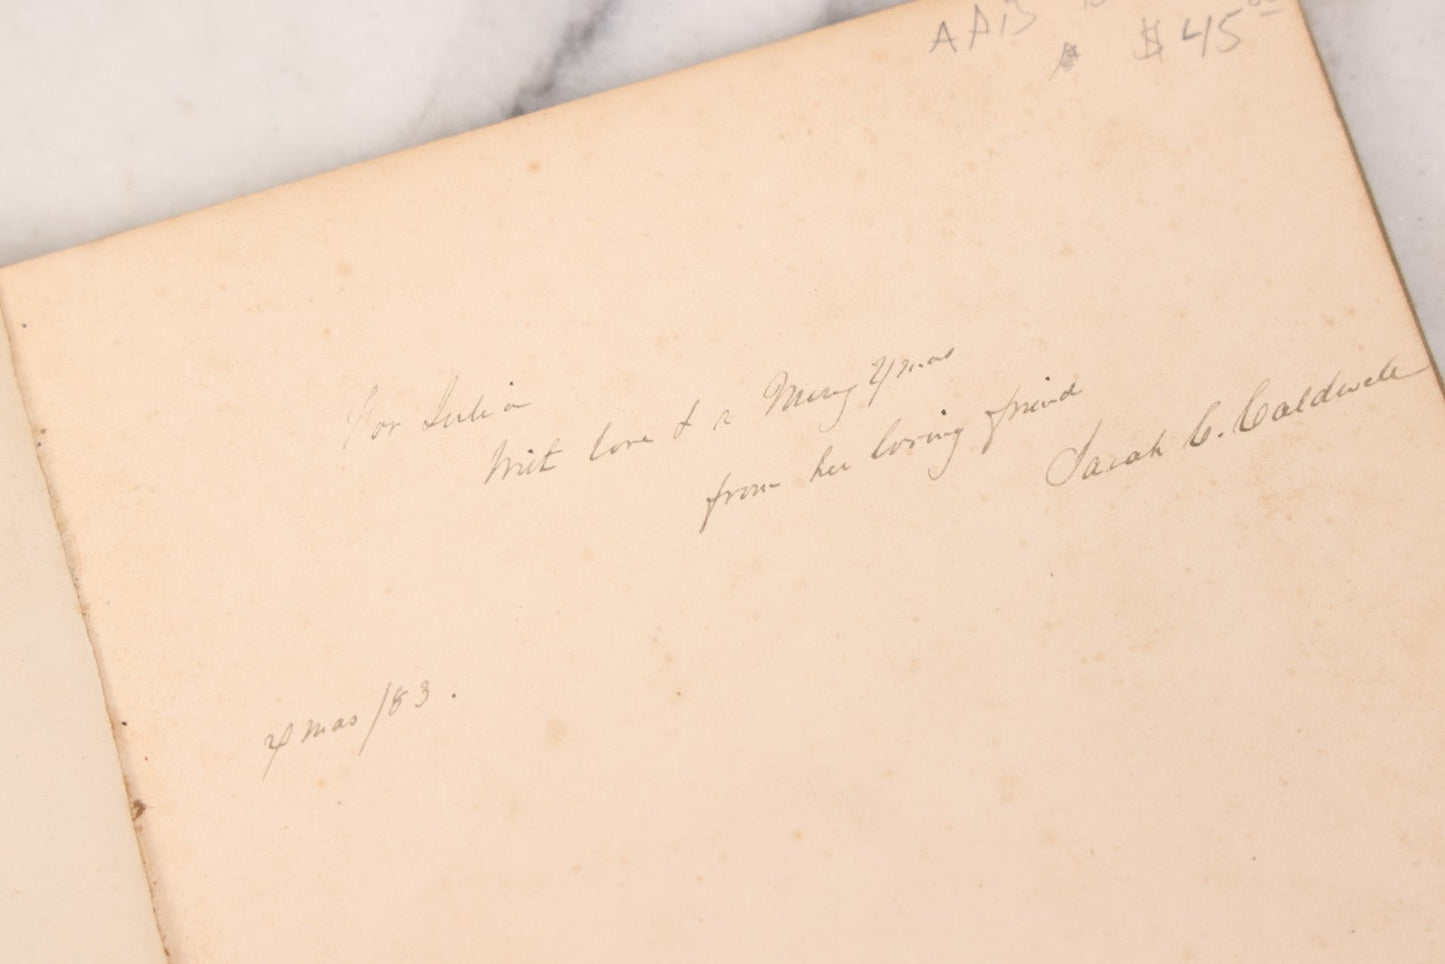 AAB
$45.00
For Julia
With love & a Merry Xmas
from her loving friend
Sarah C. Caldwell
Xmas /83.